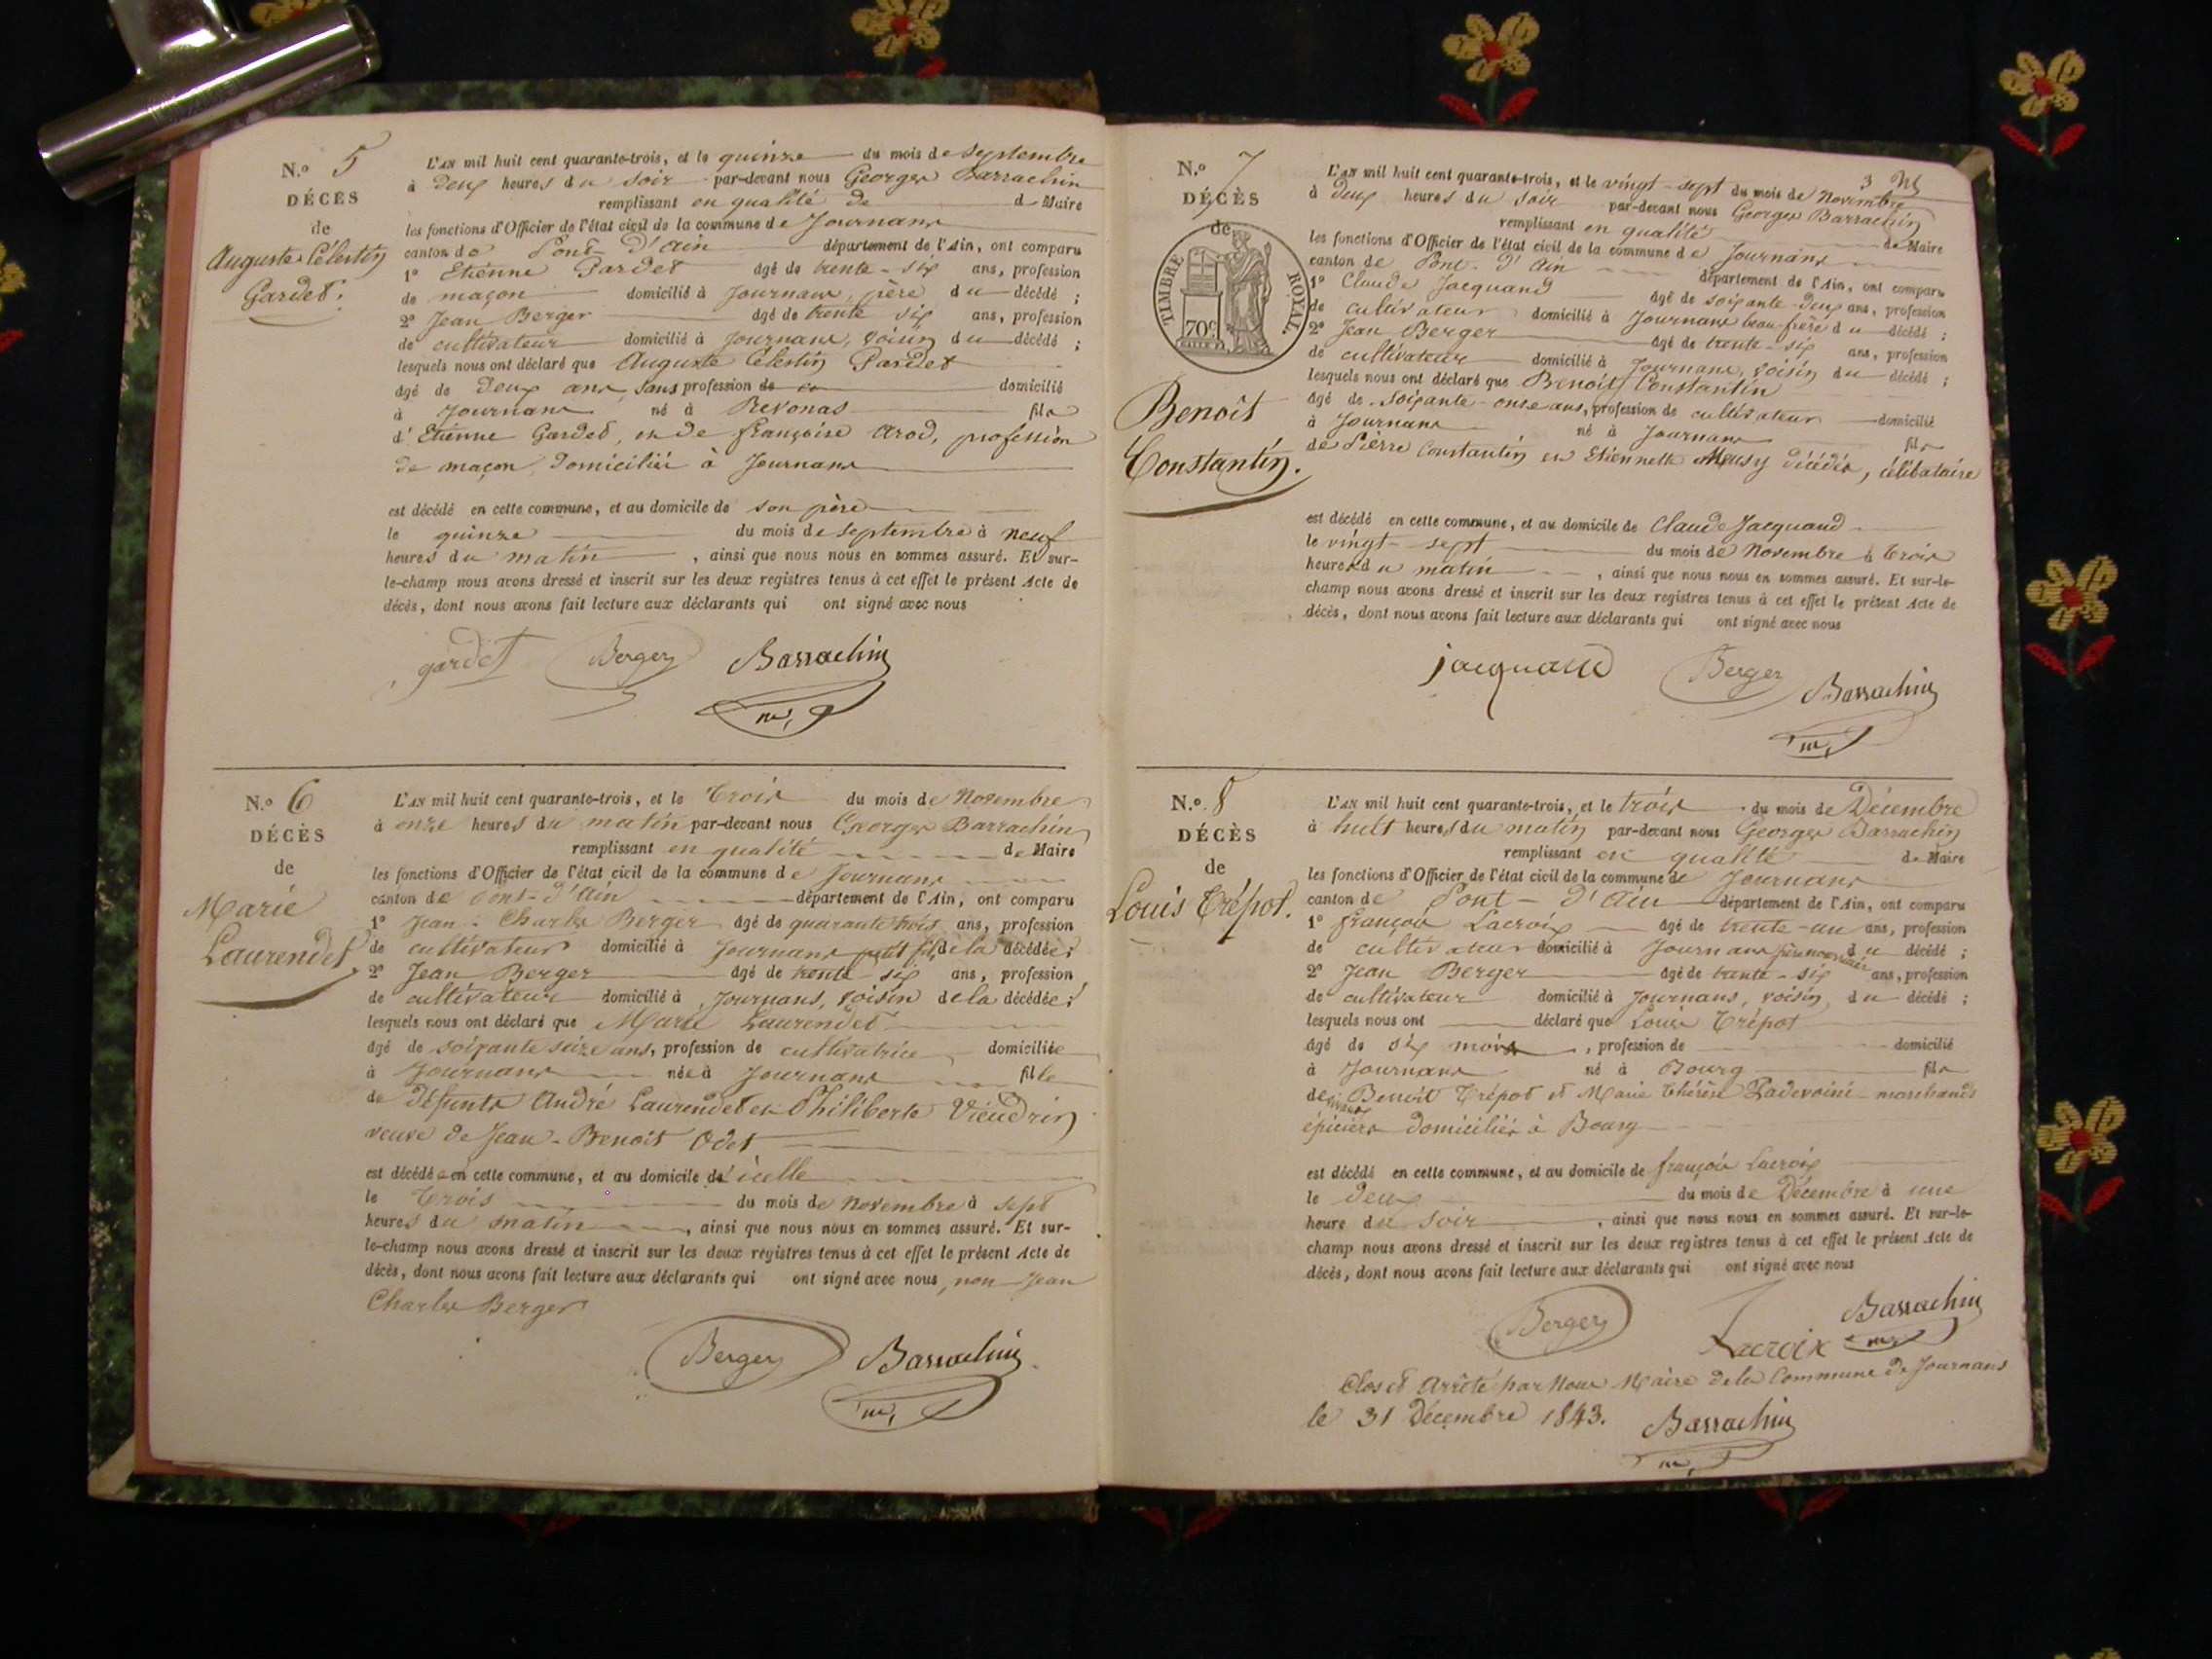 N.º 5
DÉCÈS
de
Auguste Célestin
Gardet.
L'AN mil huit cent quarante-trois, et le quinze du mois de septembre
à deux heures du soir par-devant nous Georges Barrachin
remplissant en qualité de de Maire
les fonctions d'Officier de l'état civil de la commune de Journans
canton de Pont-d'Ain département de l'Ain, ont comparu
1º Etienne Gardet âgé de trente-six ans, profession
de maçon domicilié à Journans, père du décédé ;
2º Jean Berger âgé de trente six ans, profession
de cultivateur domicilié à Journans, voisin du décédé ;
lesquels nous ont déclaré que Auguste Célestin Gardet
âgé de deux ans, sans profession de domicilié
à Journans né à Revonas fils
d'Etienne Gardet, et de françoise Arod, profession
de maçon, domiciliés à Journans
est décédé en cette commune, et au domicile de son père
le quinze du mois de septembre à neuf
heures du matin , ainsi que nous nous en sommes assuré. Et sur-
le-champ nous avons dressé et inscrit sur les deux registres tenus à cet effet le présent Acte de
décès, dont nous avons fait lecture aux déclarants qui ont signé avec nous
gardet Berger Barrachin
N.º 6
DÉCÈS
de
Marie
Laurendet
L'AN mil huit cent quarante-trois, et le trois du mois de Novembre
à onze heures du matin par-devant nous Georges Barrachin
remplissant en qualité de Maire
les fonctions d'Officier de l'état civil de la commune de Journans
canton de Pont-d'Ain département de l'Ain, ont comparu
1º Jean-Charles Berger âgé de quarante trois ans, profession
de cultivateur domicilié à Journans petit fils de la décédée ;
2º Jean Berger âgé de trente six ans, profession
de cultivateur domicilié à Journans, voisin de la décédée ;
lesquels nous ont déclaré que Marie Laurendet
âgé de soixante seize ans, profession de cultivatrice domiciliée
à Journans née à Journans fille
de défunts André Laurendet et Philiberte
veuve de Jean-Benoit Odet
est décédée en cette commune, et au domicile d'icelle
le trois du mois de novembre à sept
heures du matin , ainsi que nous nous en sommes assuré. Et sur-
le-champ nous avons dressé et inscrit sur les deux registres tenus à cet effet le présent Acte de
décès, dont nous avons fait lecture aux déclarants qui ont signé avec nous, non Jean
Charles Berger
Berger Barrachin
3
N.º 7
DÉCÈS
de
TIMBRE ROYAL.
70c
Benoît
Constantin.
L'AN mil huit cent quarante-trois, et le vingt-sept du mois de Novembre
à deux heures du soir par-devant nous Georges Barrachin
remplissant en qualité de Maire
les fonctions d'Officier de l'état civil de la commune de Journans
canton de Pont-d'Ain département de l'Ain, ont comparu
1º Claude Jacquand âgé de soixante-deux ans, profession
de cultivateur domicilié à Journans beau frère du décédé ;
2º Jean Berger âgé de trente-six ans, profession
de cultivateur domicilié à Journans, voisin du décédé ;
lesquels nous ont déclaré que Benoit Constantin
âgé de soixante-onze ans, profession de cultivateur domicilié
à Journans né à Journans fils
de Pierre Constantin et Etiennette décédés, célibataire
est décédé en cette commune, et au domicile de Claude Jacquand
le vingt-sept du mois de Novembre à trois
heures du matin , ainsi que nous nous en sommes assuré. Et sur-le-
champ nous avons dressé et inscrit sur les deux registres tenus à cet effet le présent Acte de
décès, dont nous avons fait lecture aux déclarants qui ont signé avec nous
jacquand Berger Barrachin
N.º 8
DÉCÈS
de
Louis Trépot.
L'AN mil huit cent quarante-trois, et le trois du mois de Décembre
à huit heures du matin par-devant nous Georges Barrachin
remplissant en qualité de Maire
les fonctions d'Officier de l'état civil de la commune de Journans
canton de Pont-d'Ain département de l'Ain, ont comparu
1º françois Lacroix âgé de trente-un ans, profession
de cultivateur domicilié à Journans père nourricier du décédé ;
2º Jean Berger âgé de trente-six ans, profession
de cultivateur domicilié à Journans, voisin du décédé ;
lesquels nous ont déclaré que Louis Trépot
âgé de six mois , profession de domicilié
à Journans né à Bourg fils
de Benoit Trépot et Marie Thérèse marchands
épiciers domiciliés à Bourg
est décédé en cette commune, et au domicile de françois Lacroix
le deux du mois de Décembre à une
heure du soir , ainsi que nous nous en sommes assuré. Et sur-le-
champ nous avons dressé et inscrit sur les deux registres tenus à cet effet le présent Acte de
décès, dont nous avons fait lecture aux déclarants qui ont signé avec nous
Berger Lacroix Barrachin
Clos et Arrêté par Nous Maire de la Commune de Journans
le 31 Décembre 1843. Barrachin